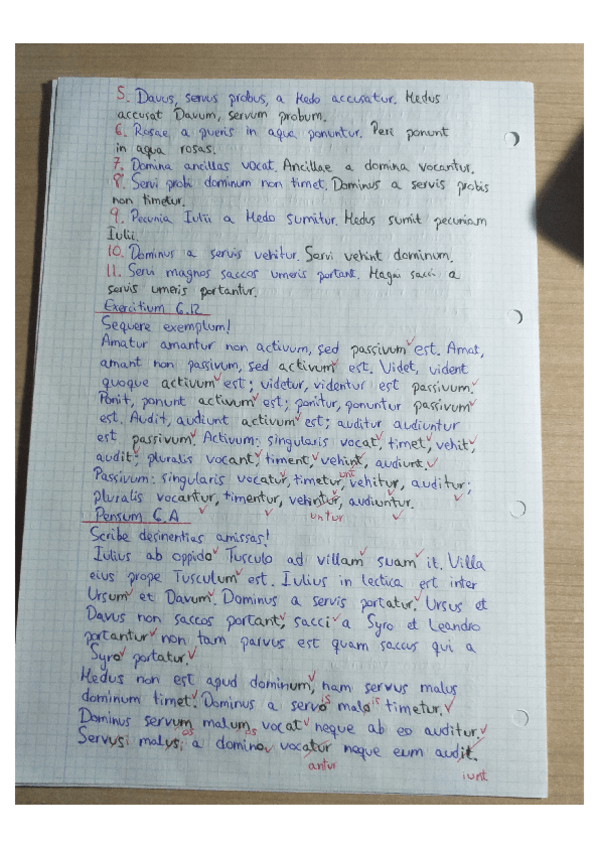 5. Davus, servus probus, a Medo accusatur. Medus
accusat Davum, servum probum.
6. Rosae a pueris in aqua ponuntur. Peri ponunt
in aqua rosas.
7. Domina ancillas vocat. Ancillae a domina vocantur.
8. Servi probi dominum non timet. Dominus a servis probis
non timetur.
9. Pecunia Iulii a Medo sumitur. Medus sumit pecuniam
Iulii.
10. Dominus a servis vehitur. Servi vehint dominum.
11. Servi magnos saccos umeris portant. Magni sacci a
servis umeris portantur.
Exercitium 6.12
Sequere exemplum!
Amatur amantur non activum, sed passivum est. Amat,
amant non passivum, sed activum est. Videt, vident
quoque activum est; videtur, videntur est passivum.
Ponit, ponunt activum est; ponitur, ponuntur passivum
est. Audit, audiunt activum est; auditur audiuntur
est passivum. Activum: singularis vocat, timet, vehit,
audit; pluralis vocant, timent, vehint, audiunt.
unt
Passivum: singularis vocatur, timetur, vehitur, auditur;
pluralis vocantur, timentur, vehintur, audiuntur.
untur
Pensum 6.A
Scribe desinentias amissas!
Iulius ab oppido Tusculo ad villam suam it. Villa
eius prope Tusculum est. Iulius in lectica est inter
Ursum et Davum. Dominus a servis portatur. Ursus et
Davus non saccos portant, sacci a Syro et Leandro
portantur non tam parvus est quam saccus qui a
Syro portatur.
Medus non est apud dominum, nam servus malus
dominum timet. Dominus a servo malo timetur.
is is
Dominus servum malum vocat neque ab eo auditur.
os os
Servusi malysi a domino vocatur neque eum audit.
antur iunt